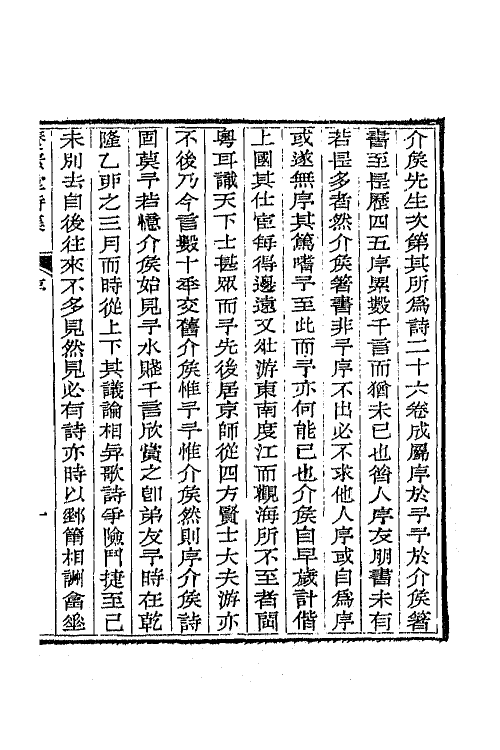 介侯先生次第其所爲詩二十六卷成屬序於予予於介侯著
書至是歷四五序累數千言而猶未已也昔人序友朋書未有
若是多者然介侯著書非予序不出必不求他人序或自爲序
或遂無序其篤嗜予至此而予亦何能已也介侯自早歲計偕
上國其仕宦每得邊遠又壯游東南度江而觀海所不至者閩
粵耳識天下士甚眾而予先後居京師從四方賢士大夫游亦
不後乃今言數十年交舊介侯惟予予惟介侯然則序介侯詩
固莫予若憶介侯始見予水賤千言欣賞之卽弟友予時在乾
隆乙卯之三月而時從上下其議論相與歌詩爭險鬥捷至已
未別去自後往來不多見然見必有詩亦時以郵筒相詶
養素堂詩集
序
一